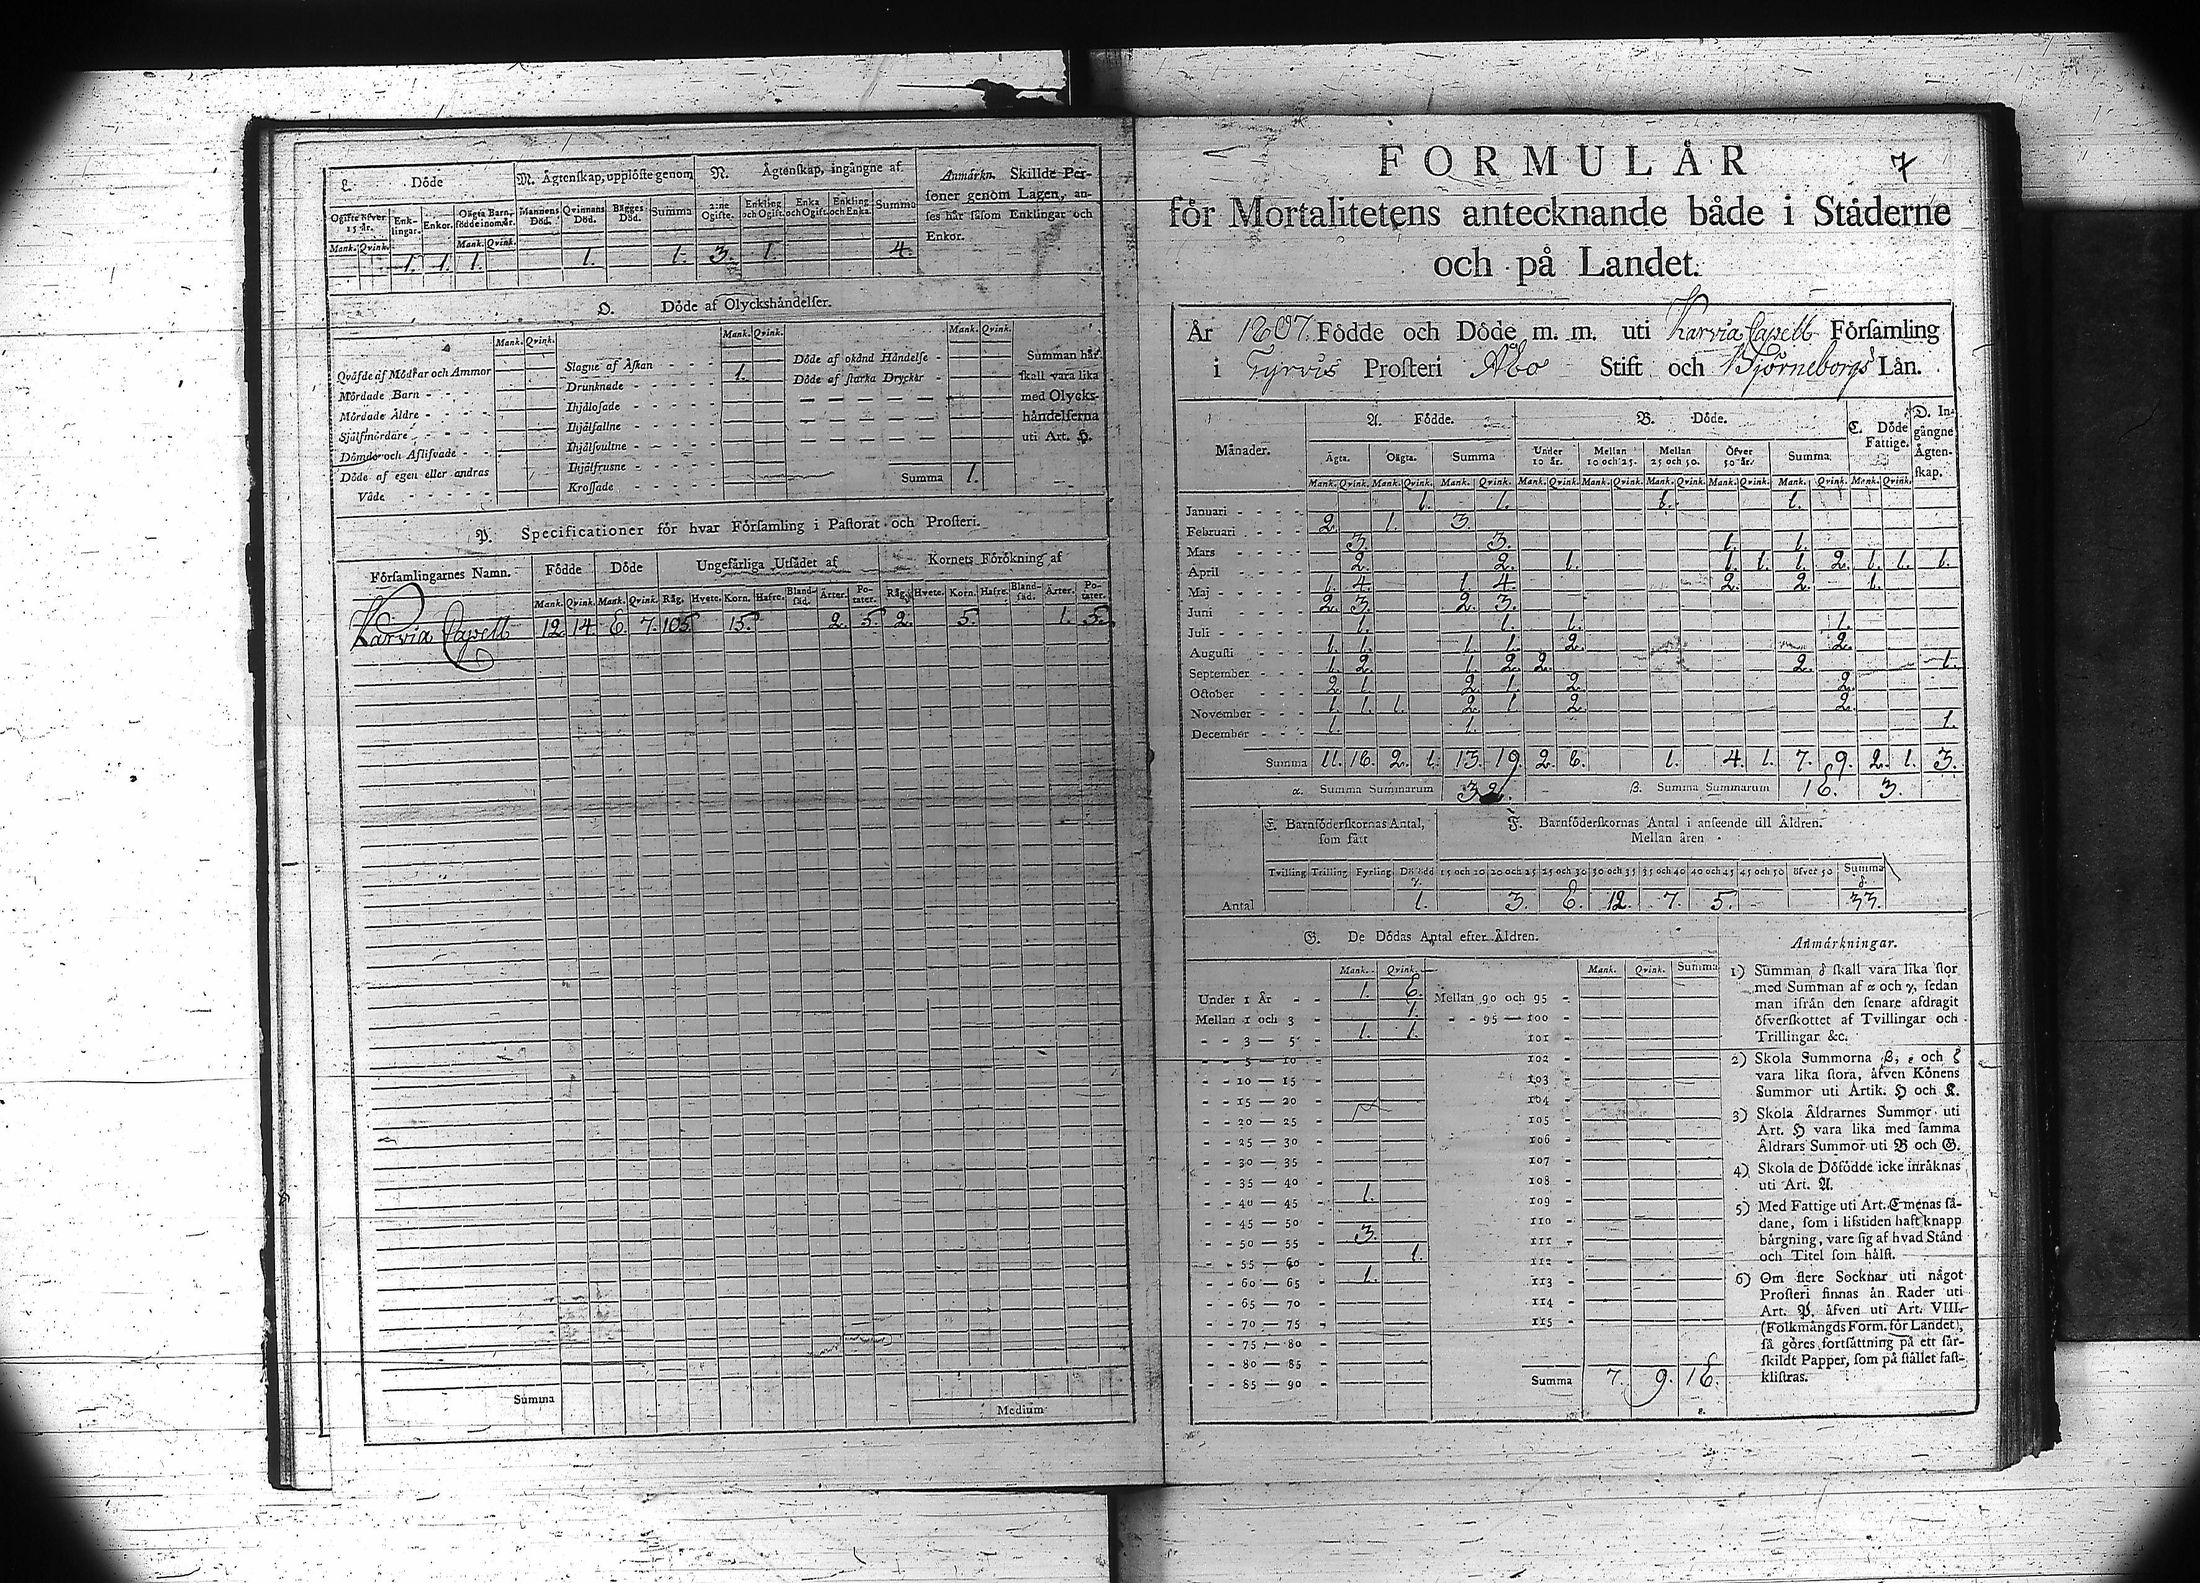 L. Döde
M. Ägtenſkap, upplöſte genom
N. Ägtenſkap, ingångne af
Anmärkn. Skillde Per-
ſoner genom Lagen, an-
ſes här ſåſom Enklingar och
Enkor.
Ogifte öfver 15 år. Enk-lingar. Enkor. Oägta Barn, födde inom år. Mannens Död. Qvinnans Död. Bägges Död. Summa 2:ne Ogifte. Enkling och Ogift. Enka och Ogift. Enkling och Enka. Summa
Mank. Qvink. Mank. Qvink.
1. 1. 1. 1. 1. 3. 1. 4.
O. Döde af Olyckshändelſer.
Mank. Qvink. Mank. Qvink. Mank. Qvink.
Qväfde af Mödrar och Ammor
Mördade Barn - - - -
Mördade Äldre - - - -
Sjelfmördare - - - -
Dömde och Aflifvade - -
Döde af egen eller andras
Våde - - - - -
Slagne af Åſkan - - -
Drunknade - - - - - 1.
Ihjälofade - - - - -
Ihjälfallne - - - - -
Ihjälſvultne - - - - -
Ihjälfrusne - - - - -
Kroſſade - - - - -
Döde af okänd Händelſe -
Döde af ſtarka Drycker -
Summa 1.
Summan här
ſkall vara lika
med Olycks-
händelſerna
uti Art. H.
P. Specificationer för hvar Förſamling i Paſtorat och Proſteri.
Förſamlingarnes Namn. Födde Döde Ungefärliga Utſädet af Kornets Förökning af
Mank. Qvink. Mank. Qvink. Råg. Hvete. Korn. Hafre. Bland-ſäd. Ärter. Po-tater. Råg. Hvete. Korn. Hafre. Bland-ſäd. Ärter. Po-tater.
Karvia Capell 12 14 6. 7. 105 15. 2. 5. 2. 5. 1. 5.
Summa
Medium
7
FORMULÄR
för Mortalitetens antecknande både i Städerne
och på Landet.
År 1807. Födde och Döde m. m. uti Karvia Capell Förſamling
i Tyrvis Proſteri Åbo Stift och Björneborgs Län.
Månader. A. Födde. B. Döde. C. Döde Fattige. D. In-gångne Ägten-ſkap.
Ägta. Oägta. Summa Under 10 år. Mellan 10 och 25. Mellan 25 och 50. Öfver 50 år. Summa
Mank. Qvink. Mank. Qvink. Mank. Qvink. Mank. Qvink. Mank. Qvink. Mank. Qvink. Mank. Qvink. Mank. Qvink. Mank. Qvink.
Januari - - - - 1. 1. 1. 1.
Februari - - - - 2. 1. 3.
Mars - - - - 3. 3. 1. 1.
April - - - - 2. 2. 1. 1. 1. 1. 2. 1. 1. 1.
Maj - - - - 1. 4. 1. 4. 2. 2. 1.
Juni - - - - 2. 3. 2. 3.
Juli - - - - 1. 1. 1. 1.
Auguſti - - - 1. 1. 1. 1. 2. 2.
September - - - 1. 2. 1. 2. 2. 2. 1.
October - - - 2. 1. 2. 1. 2. 2.
November - - - 1. 1. 1. 2. 1 2. 2.
December - - - 1. 1. 1.
Summa 11. 16. 2. 1. 13. 19. 2. 6. 1. 4. 1. 7. 9. 2. 1. 3.
α. Summa Summarum 32. β. Summa Summarum 16. 3.
E. Barnföderſkornas Antal,
ſom fått
F. Barnföderſkornas Antal i anſeende till Åldren.
Mellan åren
Tvilling Trilling Fyrling Dödfödd γ. 15 och 20 20 och 25 25 och 30 30 och 35 35 och 40 40 och 45 45 och 50 öfver 50 Summa δ.
Antal 1. 3. 6. 12. 7. 5. 33.
G. De Dödas Antal efter Åldren.
Mank. Qvink. Mank. Qvink. Summa
Under 1 År - - 1. 6.
Mellan 1 och 3 - 1.
- - 3 — 5 - 1. 1.
- - 5 — 10 -
- - 10 — 15 -
- - 15 — 20 -
- - 20 — 25 -
- - 25 — 30 -
- - 30 — 35 -
- - 35 — 40 -
- - 40 — 45 - 1.
- - 45 — 50 -
- - 50 — 55 - 3.
- - 55 — 60 - 1.
- - 60 — 65 - 1.
- - 65 — 70 -
- - 70 — 75 -
- - 75 — 80 -
- - 80 — 85 -
- - 85 — 90 -
Mellan 90 och 95 -
- - 95 — 100 -
101 -
102 -
103 -
104 -
105 -
106 -
107 -
108 -
109 -
110 -
111 -
112 -
113 -
114 -
115 -
Summa 7. 9. 16.
ε.
Anmärkningar.
1) Summan δ ſkall vara lika ſtor
med Summan af α och γ, ſedan
man ifrån den ſenare afdragit
öfverſkottet af Tvillingar och
Trillingar &c.
2) Skola Summorna β, ε och ζ
vara lika ſtora, äfven Könens
Summor uti Artik. H och L.
3) Skola Åldrarnes Summor uti
Art. H vara lika med ſamma
Åldrars Summor uti B och G.
4) Skola de Döfödde icke inräknas
uti Art. A.
5) Med Fattige uti Art. C menas ſå-
dane, ſom i lifstiden haft knapp
bärgning, vare ſig af hvad Stånd
och Titel ſom hälſt.
6) Om flere Socknar uti något
Proſteri finnas än Rader uti
Art. P. äfven uti Art. VIII.
(Folkmängds Form. för Landet),
ſå göres fortſättning på ett ſär-
ſkildt Papper, ſom på ſtället faſt-
kliſtras.